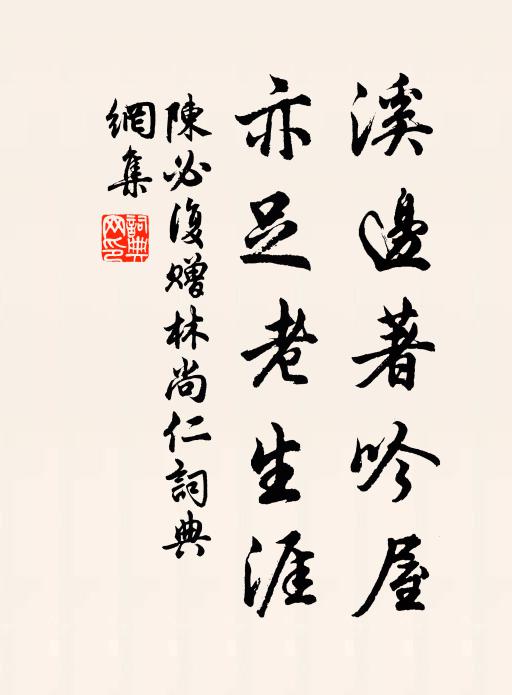 溪邊著吟屋
亦足老生涯
陳必復贈林尚仁詞典
網集
詞典網印